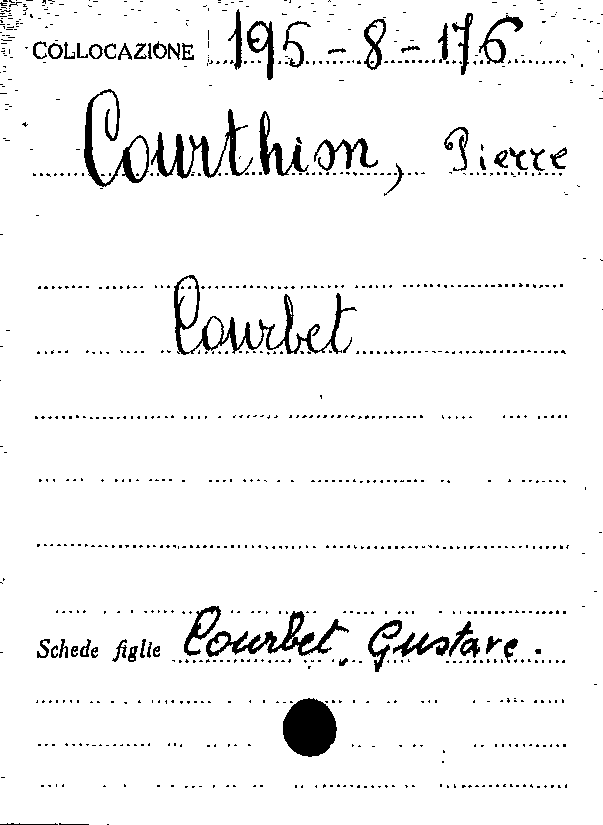 COLLOCAZIONE 195-8-176
Courthion, Pierre
Courbet
Schede figlie Courbet, Gustave.